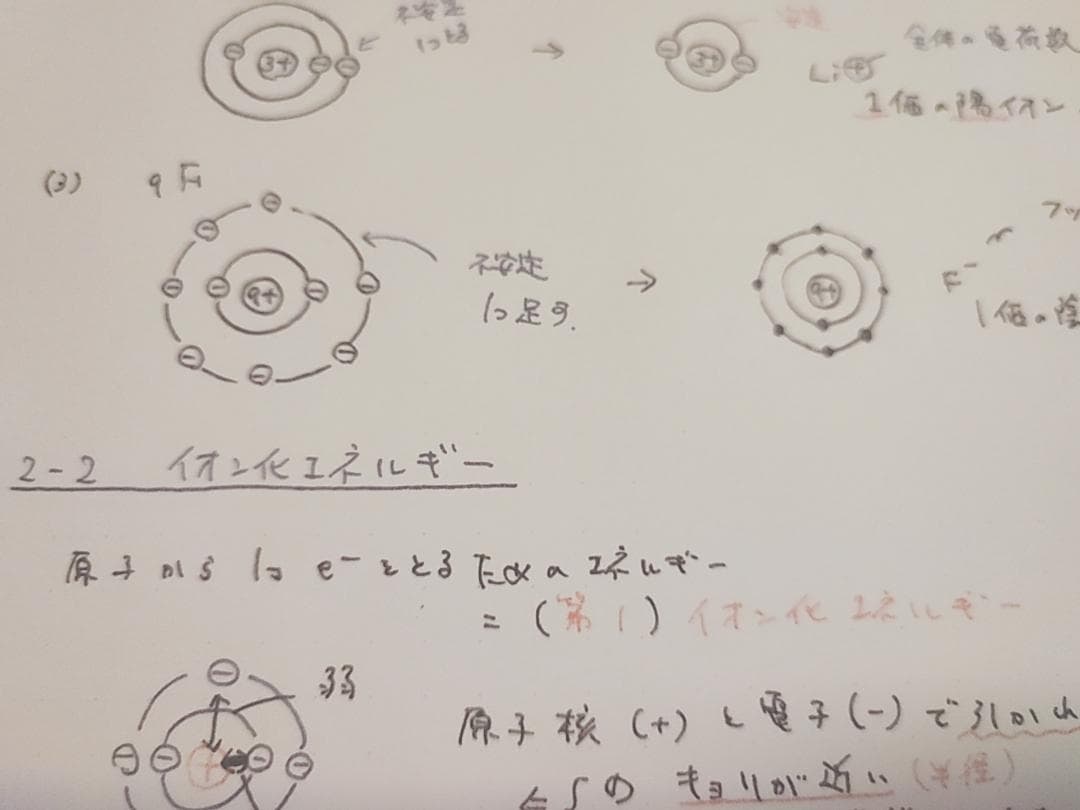 不安定
1つとる
3+
→
3+
Li+
全体の電荷数
1価の陽イオン
(3) 9F
9+
不安定
1つ足す.
→
9+
F⁻
1価の陰
2-2 イオン化エネルギー
原子から1つe⁻をとるためのエネルギー
=(第1)イオン化エネルギー
弱
原子核(+)と電子(-)で引かれ
キョリが近い(半径)